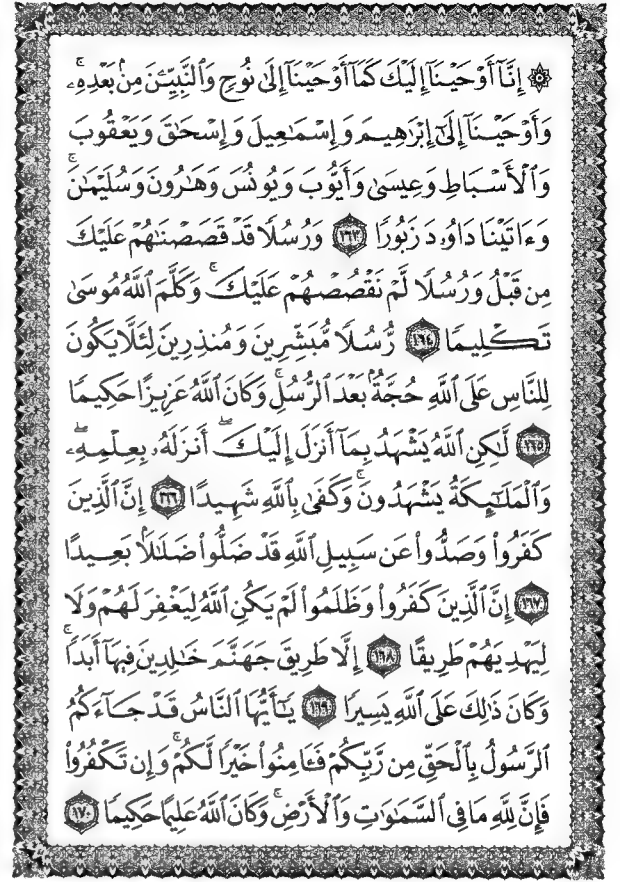 ۞ إِنَّآ أَوْحَيْنَآ إِلَيْكَ كَمَآ أَوْحَيْنَآ إِلَىٰ نُوحٍ وَٱلنَّبِيِّـۧنَ مِنۢ بَعْدِهِۦۚ
وَأَوْحَيْنَآ إِلَىٰٓ إِبْرَٰهِيمَ وَإِسْمَٰعِيلَ وَإِسْحَٰقَ وَيَعْقُوبَ
وَٱلْأَسْبَاطِ وَعِيسَىٰ وَأَيُّوبَ وَيُونُسَ وَهَٰرُونَ وَسُلَيْمَٰنَۚ
وَءَاتَيْنَا دَاوُۥدَ زَبُورًا ١٦٣ وَرُسُلًا قَدْ قَصَصْنَٰهُمْ عَلَيْكَ
مِن قَبْلُ وَرُسُلًا لَّمْ نَقْصُصْهُمْ عَلَيْكَۚ وَكَلَّمَ ٱللَّهُ مُوسَىٰ
تَكْلِيمًا ١٦٤ رُّسُلًا مُّبَشِّرِينَ وَمُنذِرِينَ لِئَلَّا يَكُونَ
لِلنَّاسِ عَلَى ٱللَّهِ حُجَّةٌۢ بَعْدَ ٱلرُّسُلِۚ وَكَانَ ٱللَّهُ عَزِيزًا حَكِيمًا
١٦٥ لَّٰكِنِ ٱللَّهُ يَشْهَدُ بِمَآ أَنزَلَ إِلَيْكَۖ أَنزَلَهُۥ بِعِلْمِهِۦۖ
وَٱلْمَلَٰٓئِكَةُ يَشْهَدُونَۚ وَكَفَىٰ بِٱللَّهِ شَهِيدًا ١٦٦ إِنَّ ٱلَّذِينَ
كَفَرُوا۟ وَصَدُّوا۟ عَن سَبِيلِ ٱللَّهِ قَدْ ضَلُّوا۟ ضَلَٰلًۢا بَعِيدًا
١٦٧ إِنَّ ٱلَّذِينَ كَفَرُوا۟ وَظَلَمُوا۟ لَمْ يَكُنِ ٱللَّهُ لِيَغْفِرَ لَهُمْ وَلَا
لِيَهْدِيَهُمْ طَرِيقًا ١٦٨ إِلَّا طَرِيقَ جَهَنَّمَ خَٰلِدِينَ فِيهَآ أَبَدًاۚ
وَكَانَ ذَٰلِكَ عَلَى ٱللَّهِ يَسِيرًا ١٦٩ يَٰٓأَيُّهَا ٱلنَّاسُ قَدْ جَآءَكُمُ
ٱلرَّسُولُ بِٱلْحَقِّ مِن رَّبِّكُمْ فَـَٔامِنُوا۟ خَيْرًا لَّكُمْۚ وَإِن تَكْفُرُوا۟
فَإِنَّ لِلَّهِ مَا فِى ٱلسَّمَٰوَٰتِ وَٱلْأَرْضِۚ وَكَانَ ٱللَّهُ عَلِيمًا حَكِيمًا ١٧٠